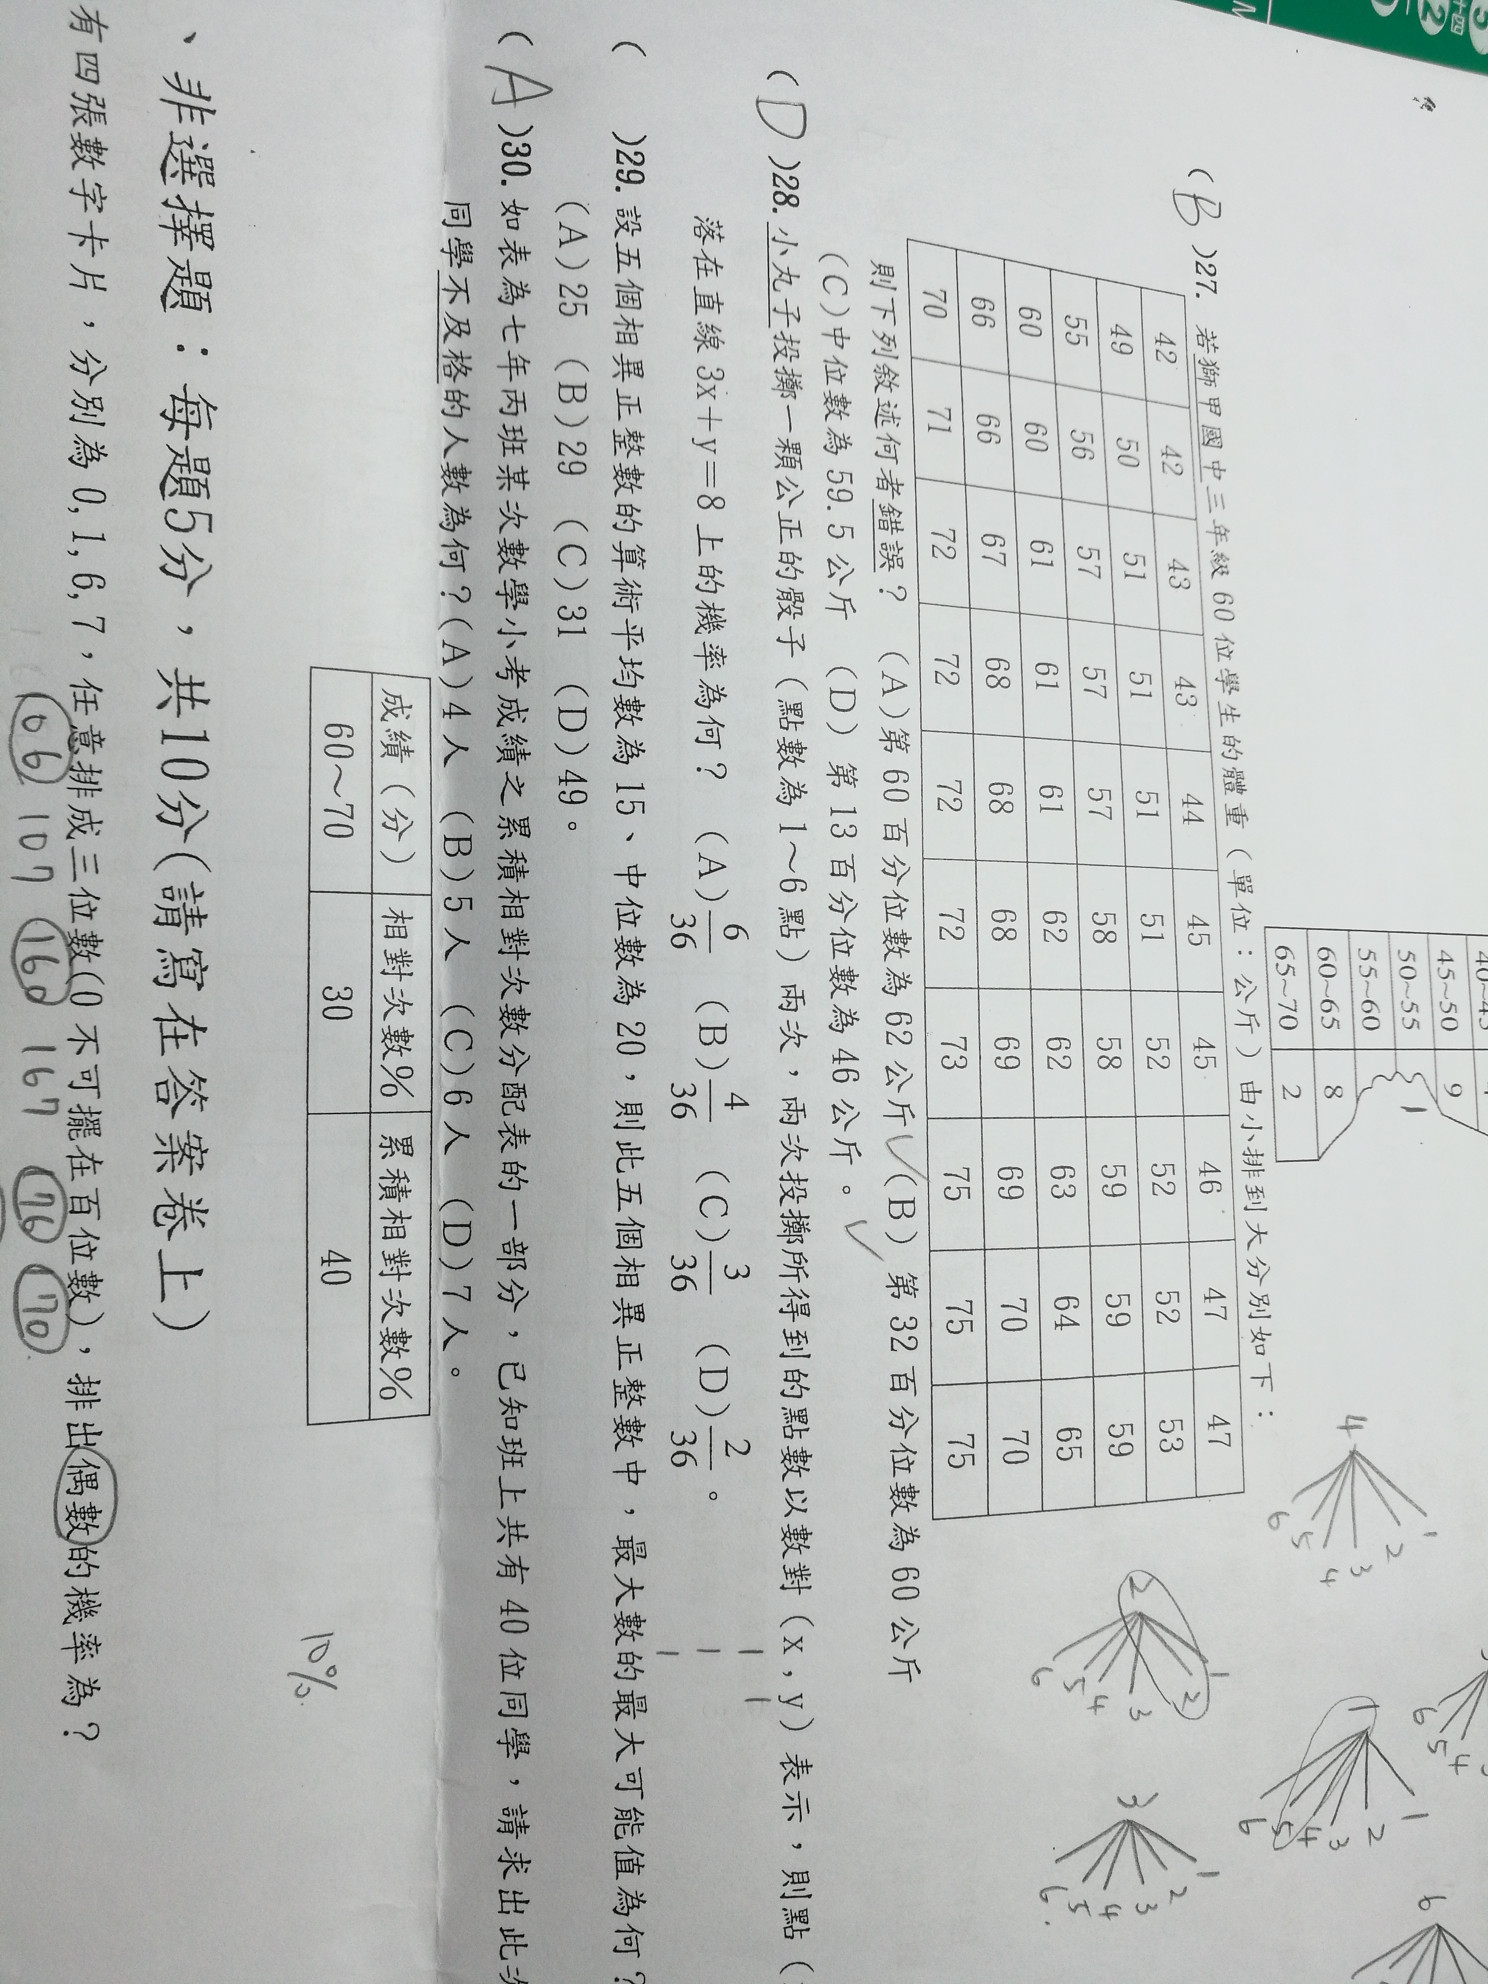 40~45
45~50 9
50~55
55~60
60~65 8
65~70 2
(B)27. 若獅甲國中三年級60位學生的體重(單位：公斤)由小排到大分別如下：
42 42 43 43 44 45 45 46 47 47
49 50 51 51 51 51 52 52 52 53
55 56 57 57 57 58 58 59 59 59
60 60 61 61 61 62 62 63 64 65
66 66 67 68 68 68 69 69 70 70
70 71 72 72 72 72 73 75 75 75
則下列敘述何者錯誤？ (A)第60百分位數為62公斤 (B)第32百分位數為60公斤
(C)中位數為59.5公斤 (D)第13百分位數為46公斤。
(D)28.小丸子投擲一顆公正的骰子(點數為1~6點)兩次，兩次投擲所得到的點數以數對(x,y)表示，則點(
落在直線3x+y=8上的機率為何？ (A)6/36 (B)4/36 (C)3/36 (D)2/36。
( )29.設五個相異正整數的算術平均數為15、中位數為20，則此五個相異正整數中，最大數的最大可能值為何？
(A)25 (B)29 (C)31 (D)49。
(A)30.如表為七年丙班某次數學小考成績之累積相對次數分配表的一部分，已知班上共有40位同學，請求出此次
同學不及格的人數為何？(A)4人 (B)5人 (C)6人 (D)7人。
成績(分) 相對次數% 累積相對次數%
60~70 30 40
10%
、非選擇題：每題5分，共10分(請寫在答案卷上)
有四張數字卡片，分別為0,1,6,7，任意排成三位數(0不可擺在百位數)，排出偶數的機率為？
106 107 160 167 176 170
4 1 2 3 4 5 6
2 1 2 3 4 5 6
1 1 2 3 4 5 6
3 1 2 3 4 5 6
6